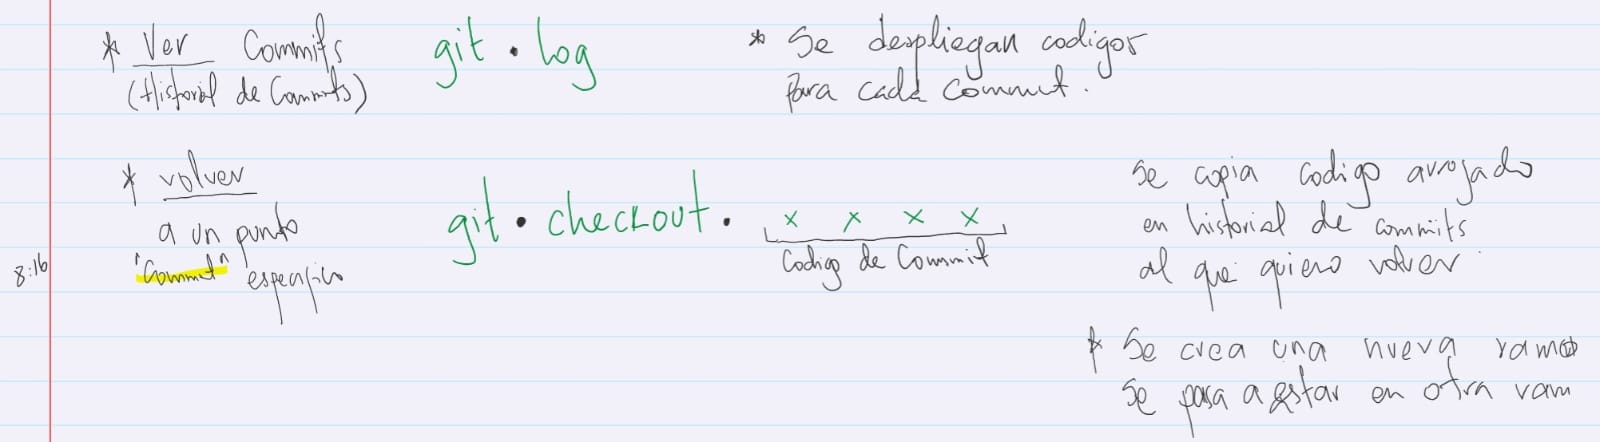 * Ver Commits
(Historial de Commits)
git · log
* Se despliegan codigos
para cada commit.
* volver
a un punto
"Commit" especifico
8:16
git · checkout · x x x x
Codigo de Commit
Se copia codigo arrojado
en historial de commits
al que quiero volver
* Se crea una nueva rama
Se pasa a estar en otra ram